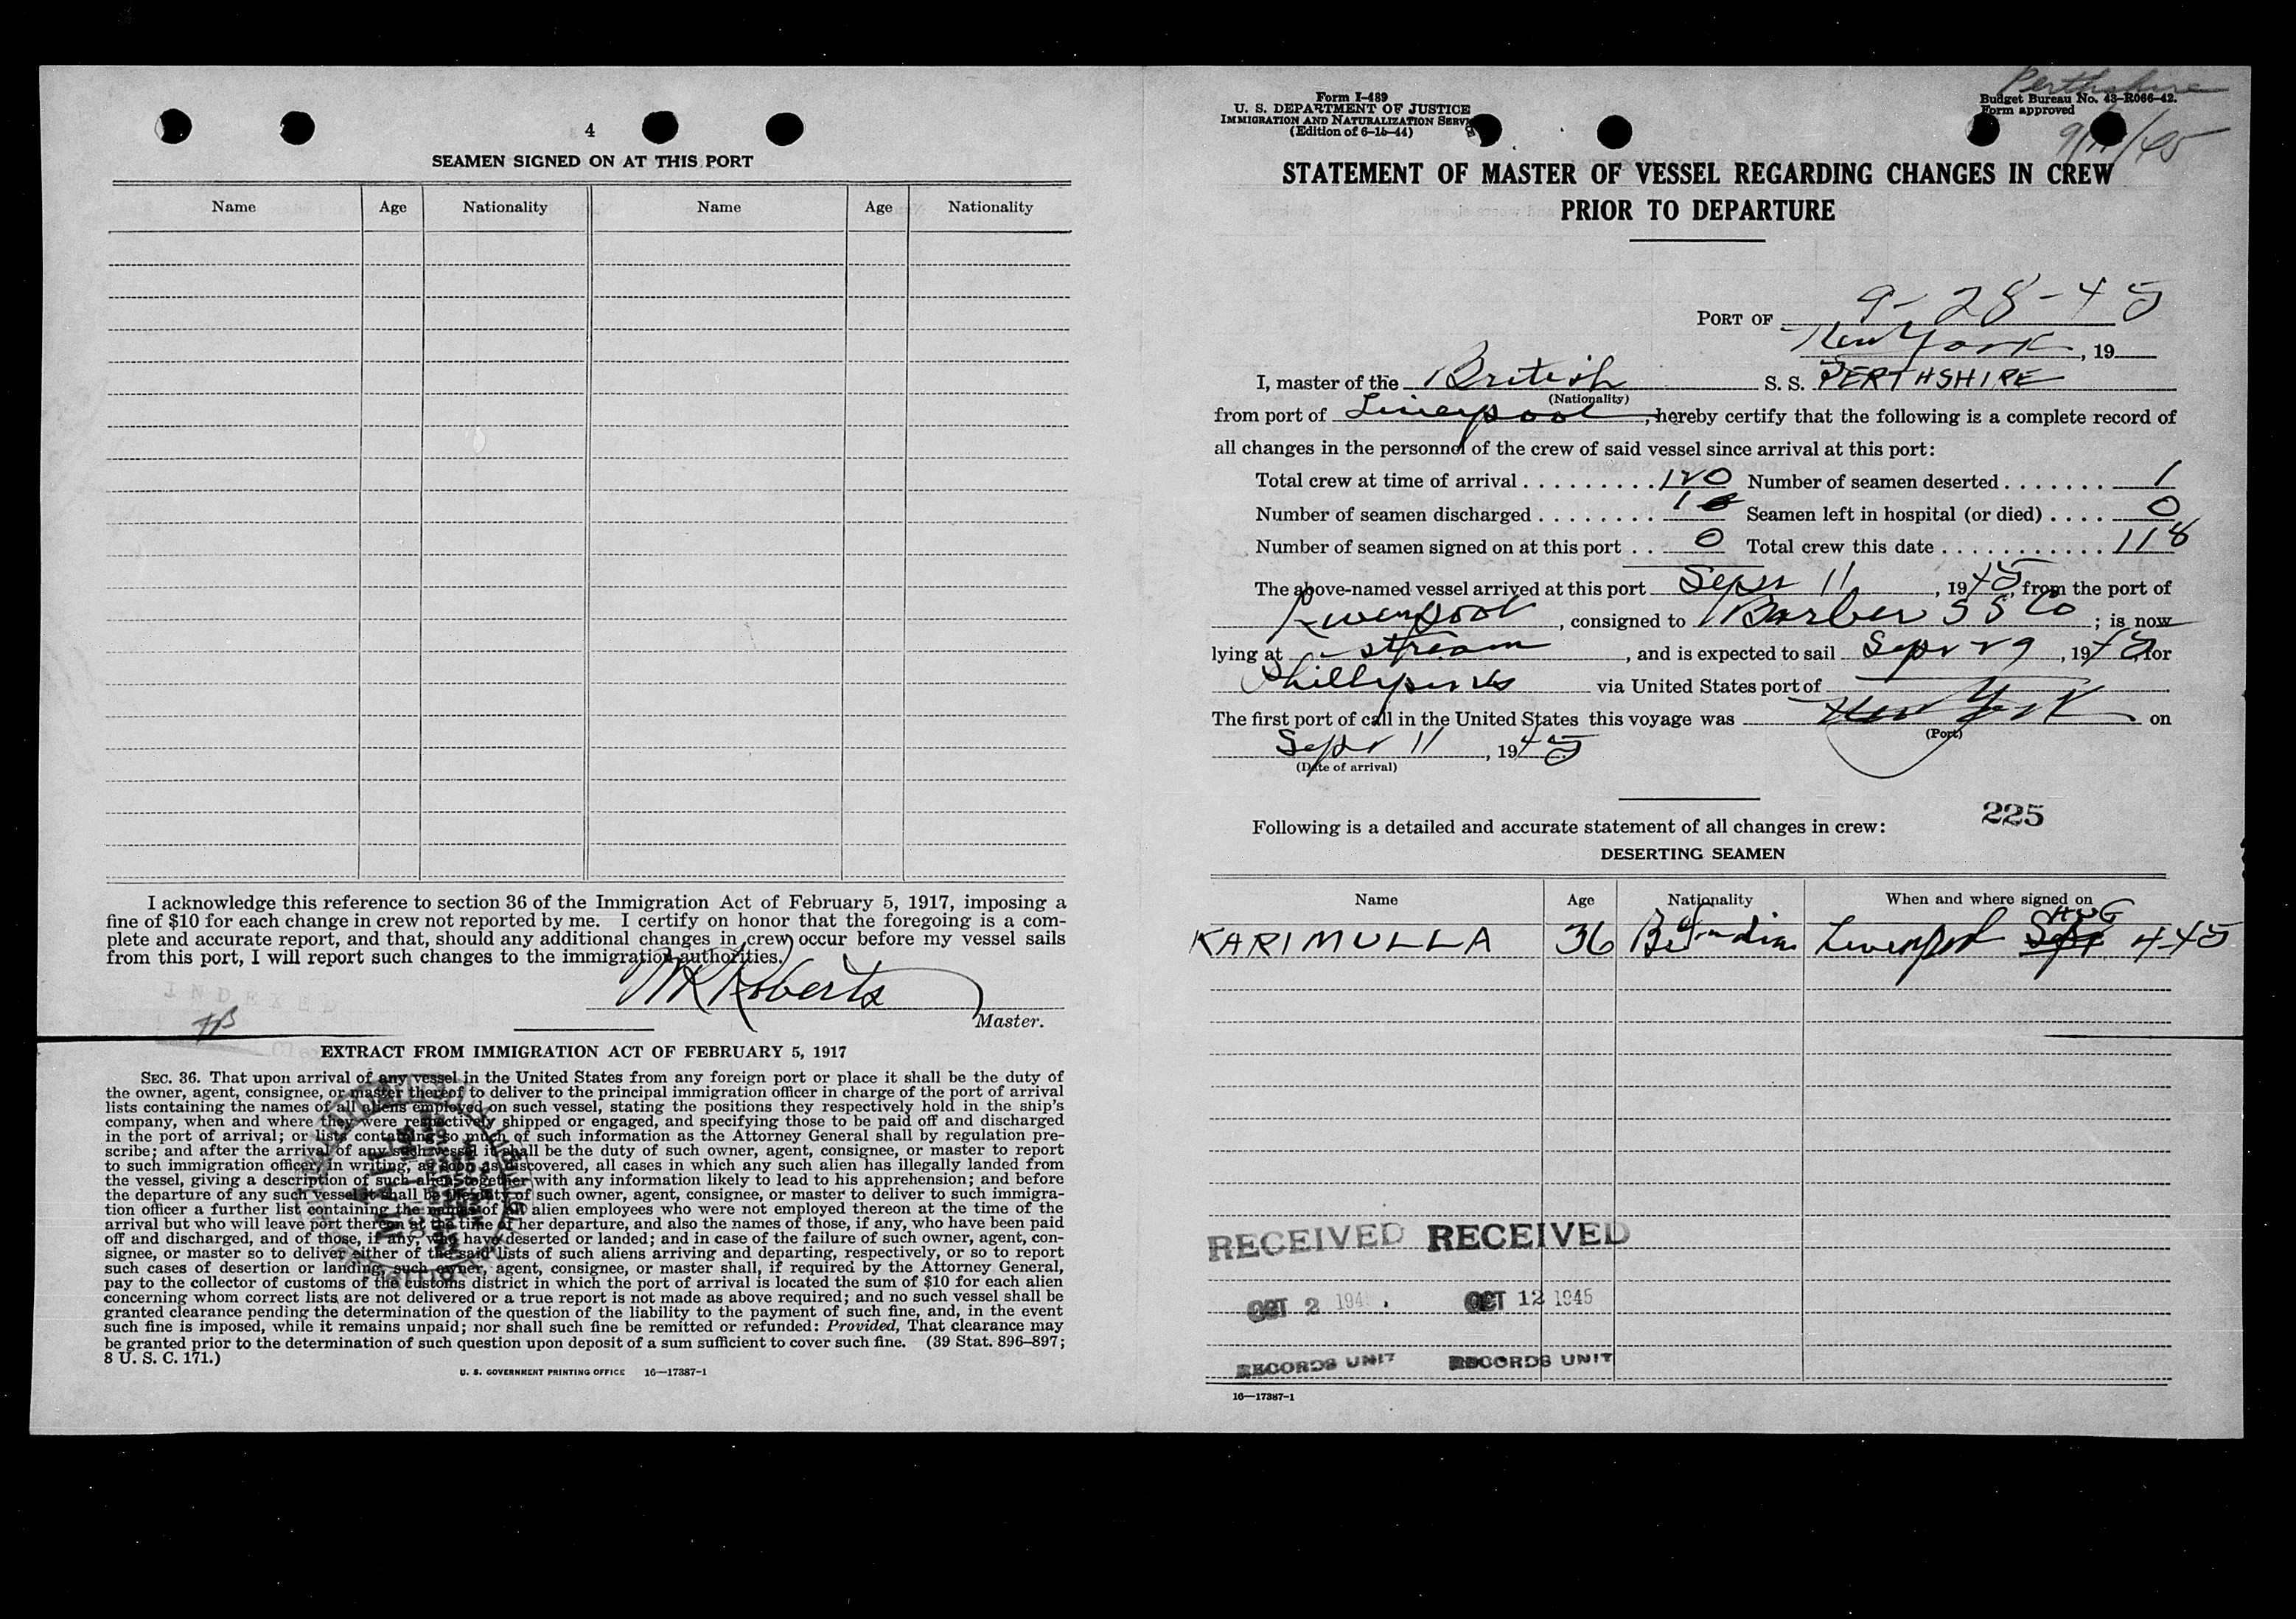 4
SEAMEN SIGNED ON AT THIS PORT
Name Age Nationality Name Age Nationality
I acknowledge this reference to section 36 of the Immigration Act of February 5, 1917, imposing a
fine of $10 for each change in crew not reported by me. I certify on honor that the foregoing is a com-
plete and accurate report, and that, should any additional changes in crew occur before my vessel sails
from this port, I will report such changes to the immigration authorities.
INDEXED
WR Roberts
Master.
EXTRACT FROM IMMIGRATION ACT OF FEBRUARY 5, 1917
SEC. 36. That upon arrival of any vessel in the United States from any foreign port or place it shall be the duty of
the owner, agent, consignee, or master thereof to deliver to the principal immigration officer in charge of the port of arrival
lists containing the names of all aliens employed on such vessel, stating the positions they respectively hold in the ship's
company, when and where they were respectively shipped or engaged, and specifying those to be paid off and discharged
in the port of arrival; or lists containing so much of such information as the Attorney General shall by regulation pre-
scribe; and after the arrival of any such vessel it shall be the duty of such owner, agent, consignee, or master to report
to such immigration officer, in writing, as soon as discovered, all cases in which any such alien has illegally landed from
the vessel, giving a description of such alien, together with any information likely to lead to his apprehension; and before
the departure of any such vessel it shall be the duty of such owner, agent, consignee, or master to deliver to such immigra-
tion officer a further list containing the names of all alien employees who were not employed thereon at the time of the
arrival but who will leave port thereon at the time of her departure, and also the names of those, if any, who have been paid
off and discharged, and of those, if any, who have deserted or landed; and in case of the failure of such owner, agent, con-
signee, or master so to deliver either of the said lists of such aliens arriving and departing, respectively, or so to report
such cases of desertion or landing, such owner, agent, consignee, or master shall, if required by the Attorney General,
pay to the collector of customs of the customs district in which the port of arrival is located the sum of $10 for each alien
concerning whom correct lists are not delivered or a true report is not made as above required; and no such vessel shall be
granted clearance pending the determination of the question of the liability to the payment of such fine, and, in the event
such fine is imposed, while it remains unpaid; nor shall such fine be remitted or refunded: Provided, That clearance may
be granted prior to the determination of such question upon deposit of a sum sufficient to cover such fine. (39 Stat. 896–897;
8 U. S. C. 171.)
U. S. GOVERNMENT PRINTING OFFICE 16—17387-1
Form I-489
U. S. DEPARTMENT OF JUSTICE
IMMIGRATION AND NATURALIZATION SERVICE
(Edition of 6-15-44)
Perthshire
Budget Bureau No. 43-R066-42.
Form approved
9/11/45
STATEMENT OF MASTER OF VESSEL REGARDING CHANGES IN CREW
PRIOR TO DEPARTURE
PORT OF 9-28-45
New York, 19
I, master of the British S. S. PERTHSHIRE
(Nationality)
from port of Liverpool, hereby certify that the following is a complete record of
all changes in the personnel of the crew of said vessel since arrival at this port:
Total crew at time of arrival 120 Number of seamen deserted 1
Number of seamen discharged 1 Seamen left in hospital (or died) 0
Number of seamen signed on at this port 0 Total crew this date 118
The above-named vessel arrived at this port Sept 11, 1945, from the port of
Liverpool, consigned to Barber S S Co; is now
lying at stream, and is expected to sail Sept 29, 1945, for
Phillipines via United States port of
The first port of call in the United States this voyage was New York on
(Port)
Sept 11, 1945
(Date of arrival)
225
Following is a detailed and accurate statement of all changes in crew:
DESERTING SEAMEN
Name Age Nationality When and where signed on
KARIMULLA 36 Br Indian Liverpool Sept AUG 4-45
RECEIVED RECEIVED
OCT 2 194 OCT 12 1945
RECORDS UNIT RECORDS UNIT
16—17387-1